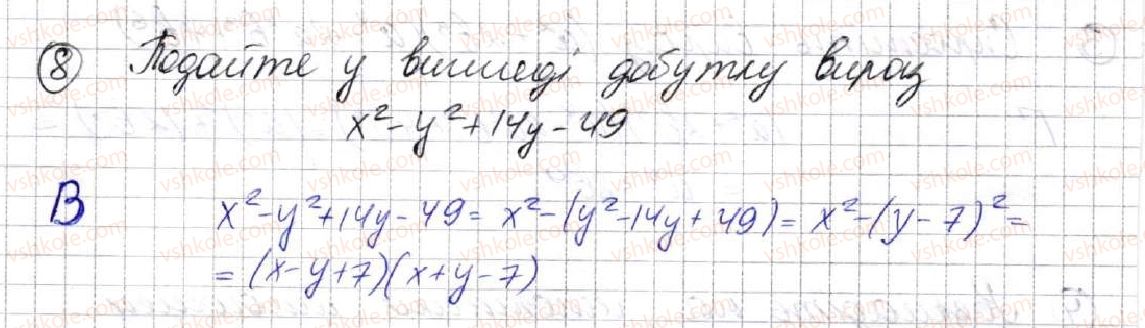 8 Подайте у вигляді добутку вираз
x² - y² + 14y - 49
В x² - y² + 14y - 49 = x² - (y² - 14y + 49) = x² - (y - 7)² =
= (x - y + 7)(x + y - 7)